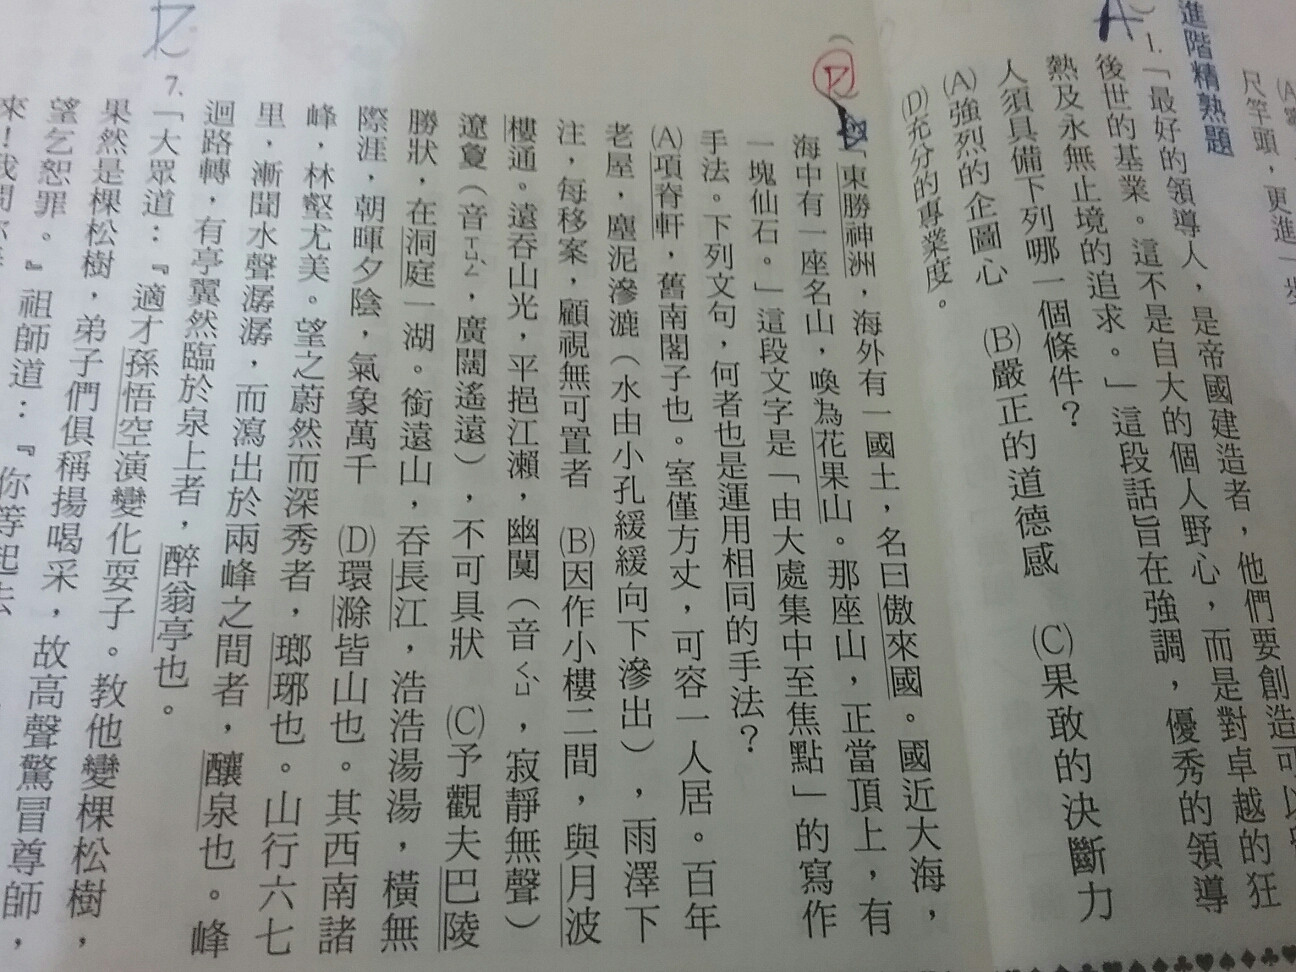 尺竿頭，更進一步
進階精熟題
A
1.「最好的領導人，是帝國建造者，他們要創造可以
後世的基業。這不是自大的個人野心，而是對卓越的狂
熱及永無止境的追求。」這段話旨在強調，優秀的領導
人須具備下列哪一個條件？
(A)強烈的企圖心　(B)嚴正的道德感　(C)果敢的決斷力
(D)充分的專業度。
D
「東勝神洲，海外有一國土，名曰傲來國。國近大海，
海中有一座名山，喚為花果山。那座山，正當頂上，有
一塊仙石。」這段文字是「由大處集中至焦點」的寫作
手法。下列文句，何者也是運用相同的手法？
(A)項脊軒，舊南閣子也。室僅方丈，可容一人居。百年
老屋，塵泥滲漉（水由小孔緩緩向下滲出），雨澤下
注，每移案，顧視無可置者　(B)因作小樓二間，與月波
樓通。遠吞山光，平挹江瀨，幽闃（音ㄑㄩˋ，寂靜無聲）
遼夐（音ㄒㄩㄥˋ，廣闊遙遠），不可具狀　(C)予觀夫巴陵
勝狀，在洞庭一湖。銜遠山，吞長江，浩浩湯湯，橫無
際涯，朝暉夕陰，氣象萬千　(D)環滁皆山也。其西南諸
峰，林壑尤美。望之蔚然而深秀者，瑯琊也。山行六七
里，漸聞水聲潺潺，而瀉出於兩峰之間者，釀泉也。峰
迴路轉，有亭翼然臨於泉上者，醉翁亭也。
7.「大眾道：『適才孫悟空演變化耍子。教他變棵松樹，
果然是棵松樹，弟子們俱稱揚喝采，故高聲驚冒尊師，
望乞恕罪。』祖師道：『你等起去
來！我問